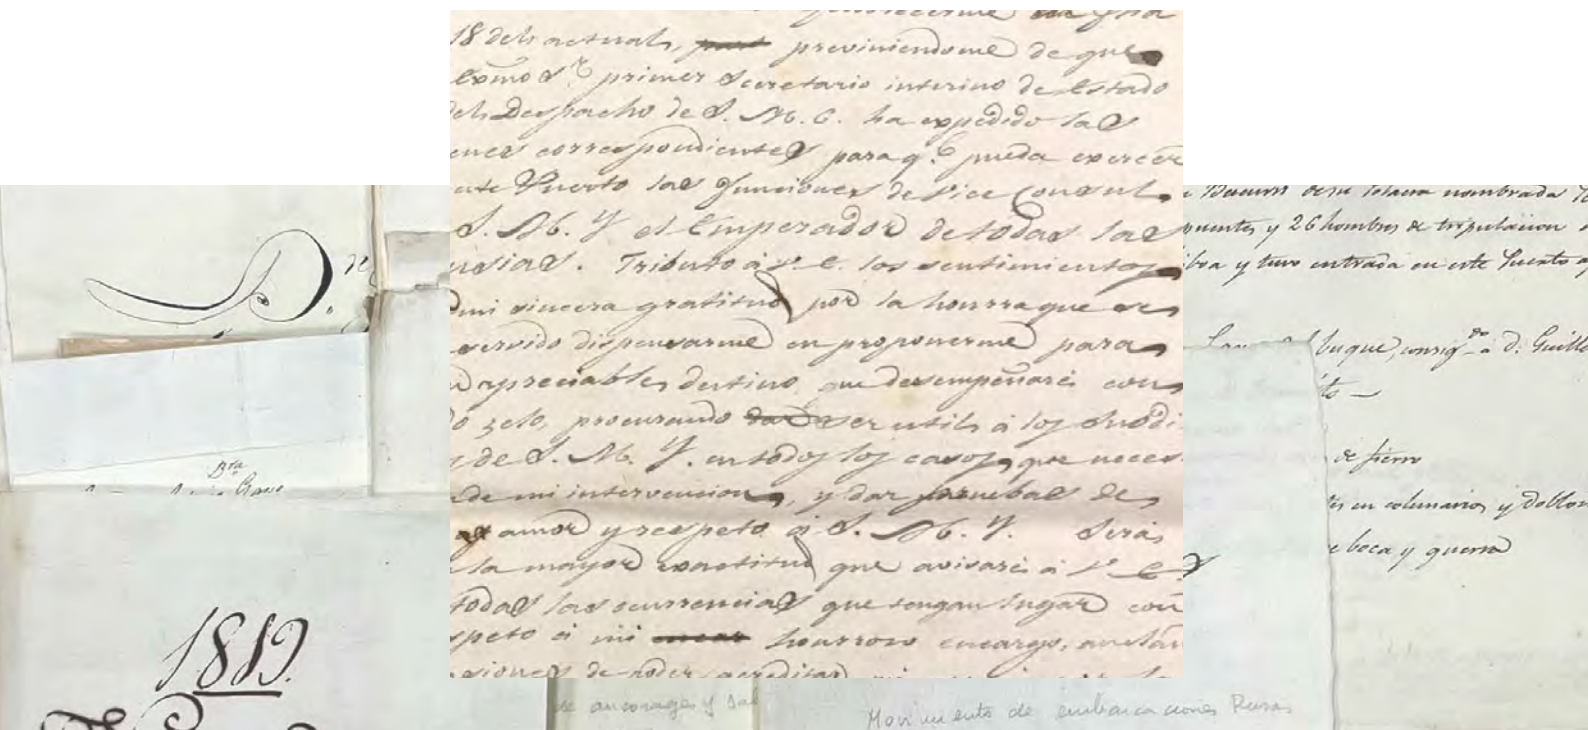 18 del actual, previniendome de que
Exmo Sr. primer Secretario interino de Estado
del Despacho de S. M. C. ha expedido las
enes correspondientes para q.e pueda exercer
este Puerto las funciones de Vice Consul
S. M. Y. el Emperador de todas las
usias. Tributo à V. E. los sentimientos
mi sincera gratitud por la honrra que se
servido dispensarme en proponerme para
apreciable destino, que desempeñaré con
zelo, procurando ser util à los subdi
de S. M. Y. en todos los casos, que neces
de mi intervencion, y dar pruebas de
amor y respeto à S. M. Y. Será
la mayor exactitud que avisaré à V. E.
todas las ocurrencias que tengan lugar con
speto à mi honrroso encargo, anelan
siones de poder acreditar
nombrada
puentes y 26 hombres de tripulacion
y tuvo entrada en este Puerto
buque, consig.do à D. Guille
to —
de fierro
en columnarios y Doblon
boca y guerra
D.
1819.
de ancorages y Sal
Movimiento de embarcaciones Rusas